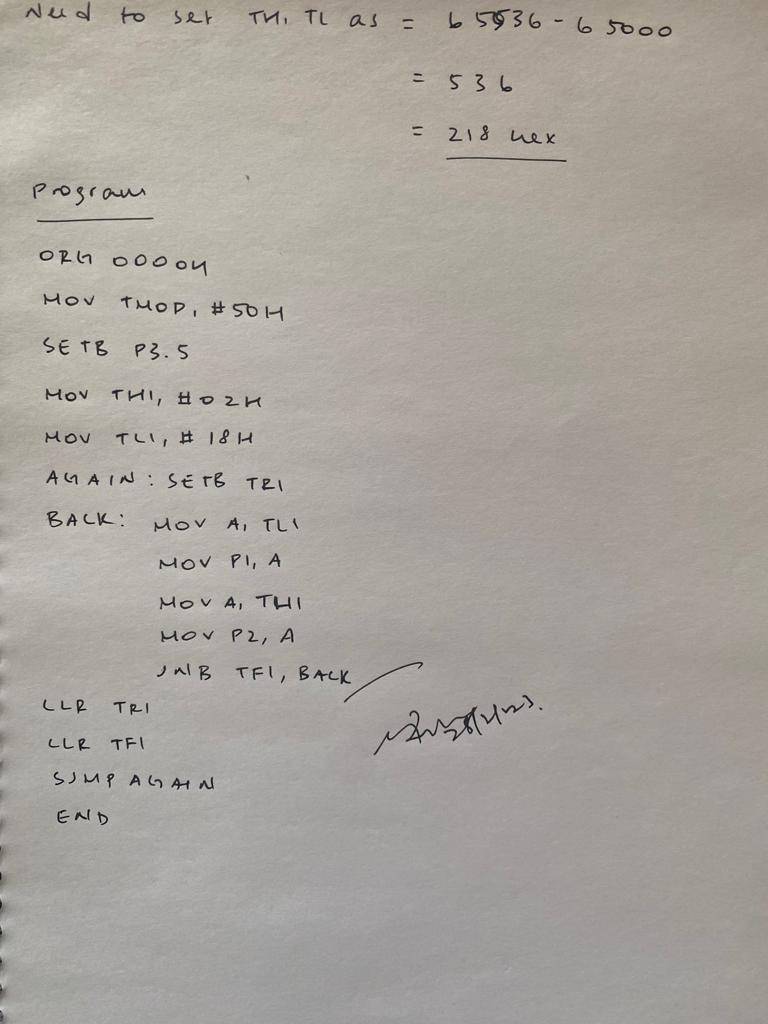 Need to set TH, TL as = 65536 - 65000
= 536
= 218 hex
Program
ORG 0000H
MOV TMOD, #50H
SETB P3.5
MOV TH1, #02H
MOV TL1, #18H
AGAIN: SETB TR1
BACK: MOV A, TL1
MOV P1, A
MOV A, TH1
MOV P2, A
JNB TF1, BACK
CLR TR1
CLR TF1
SJMP AGAIN
END